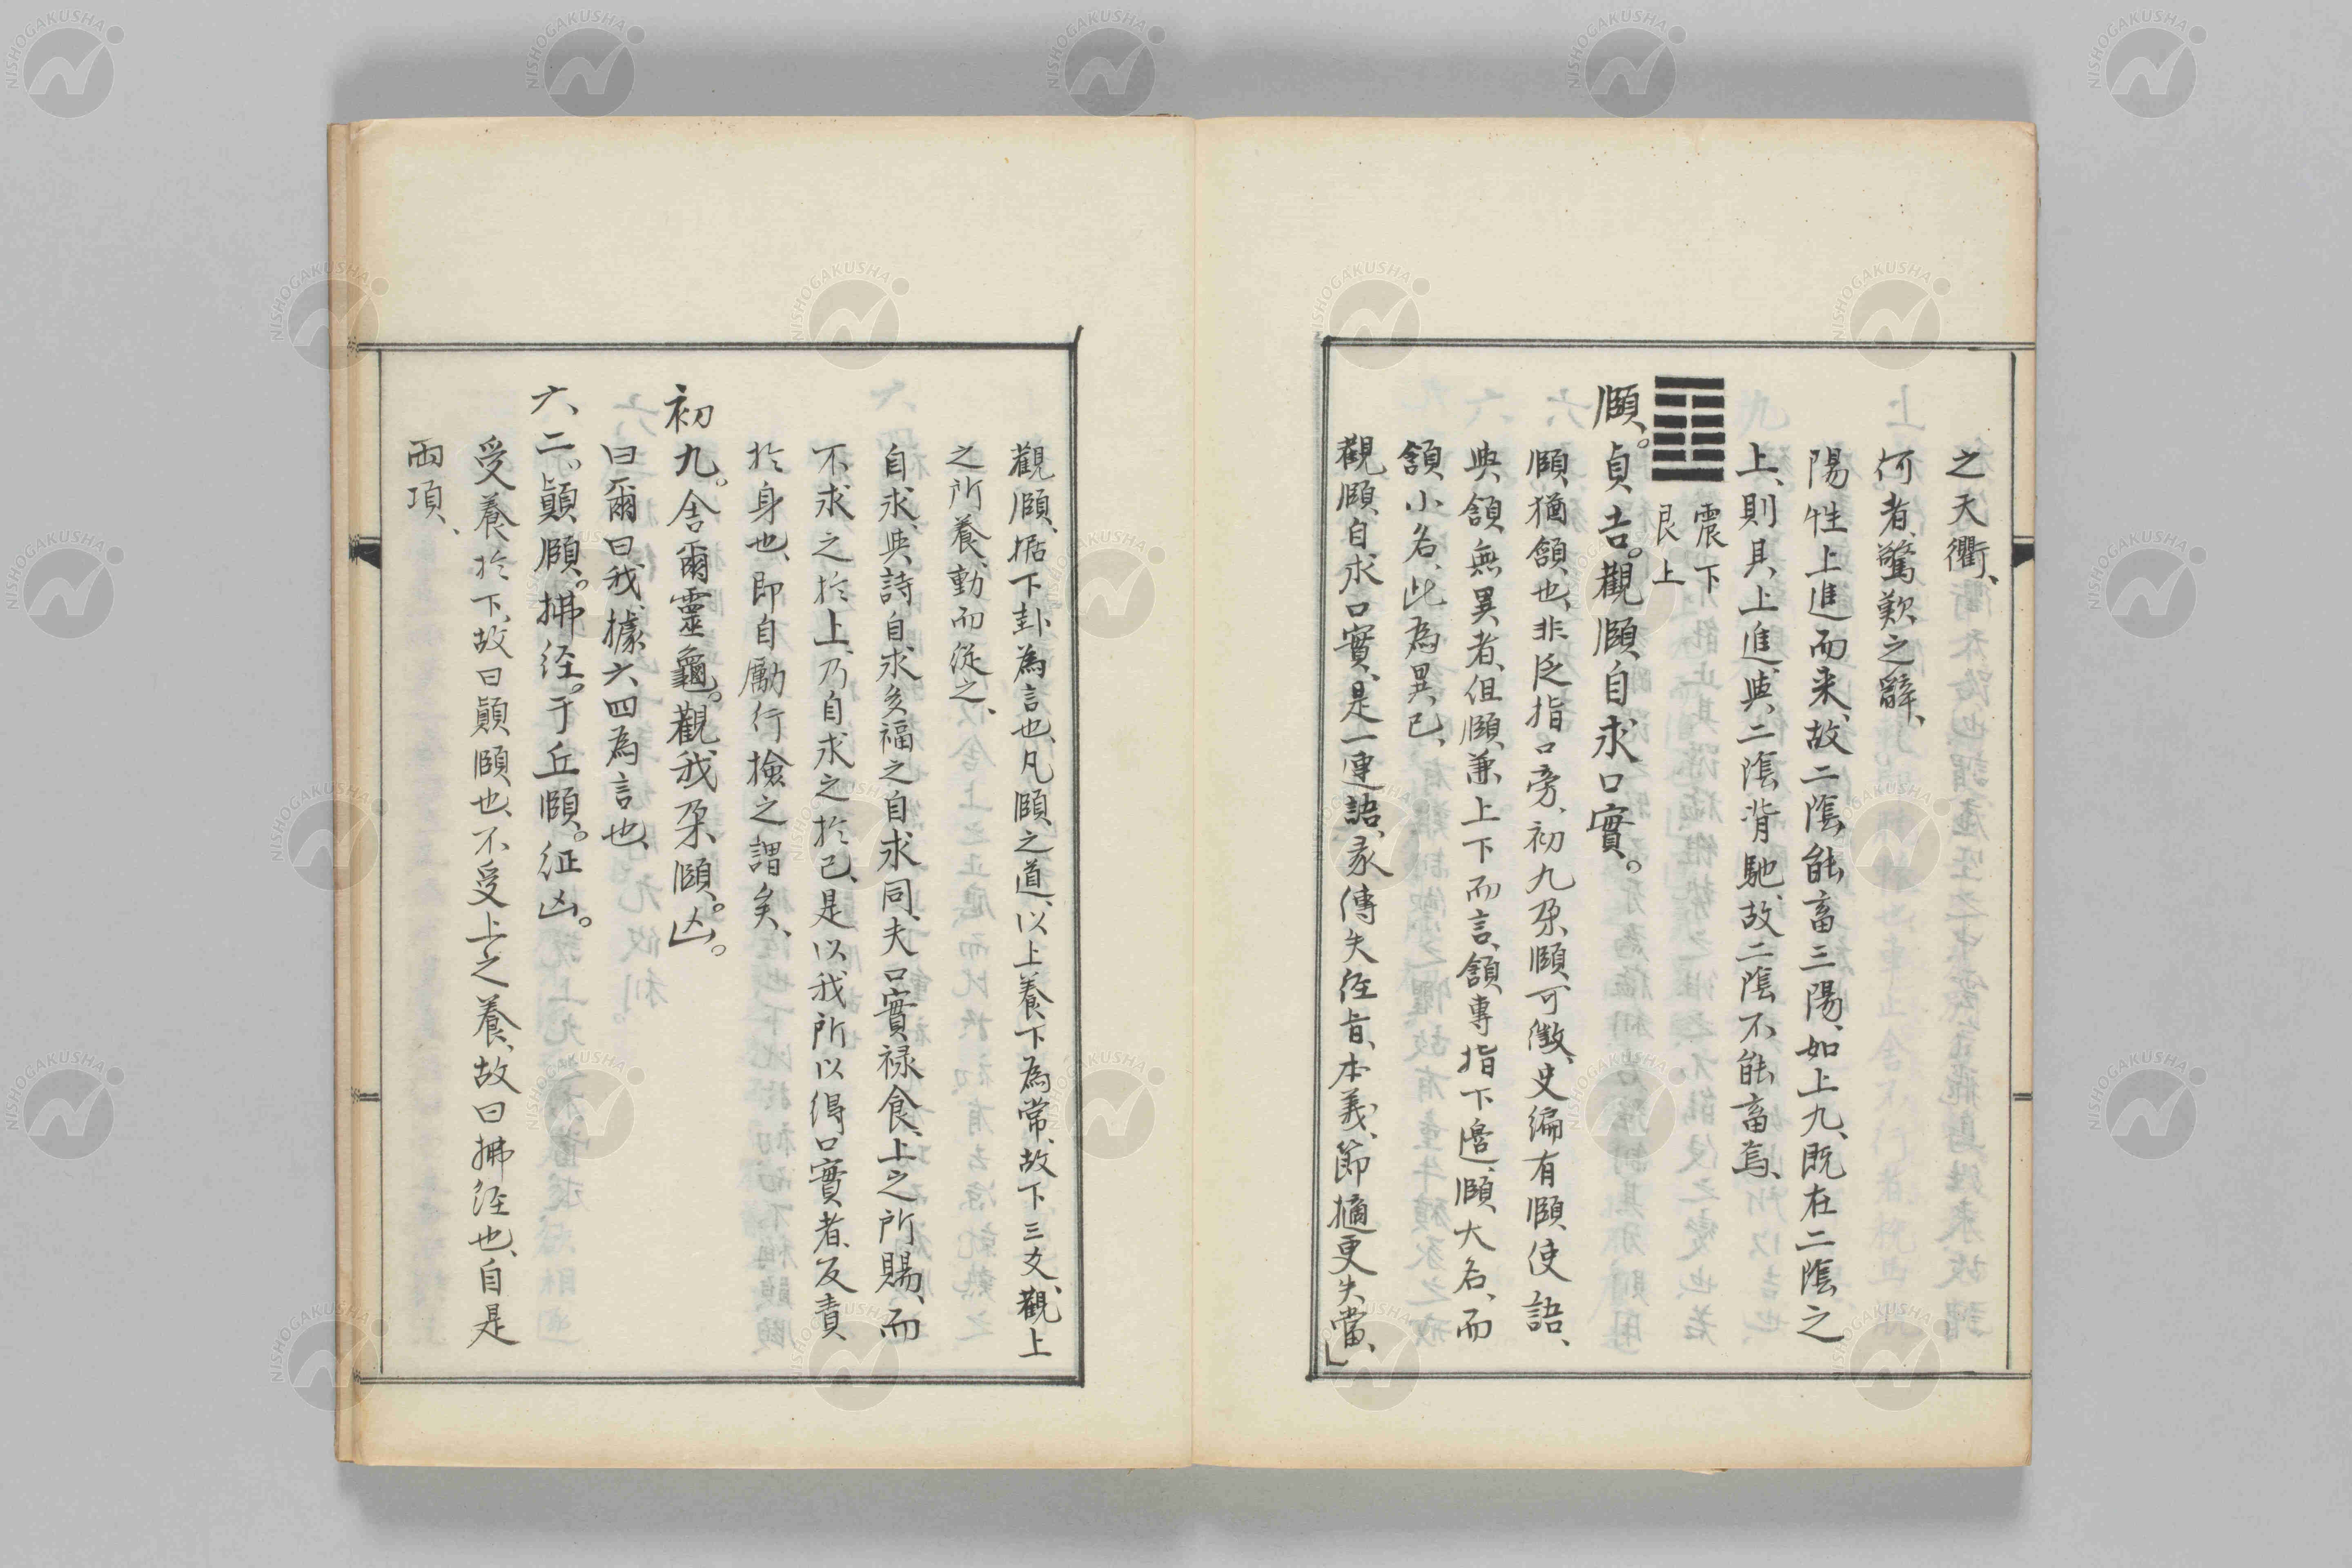 之天衢、
何者、驚歎之辭、
陽性上進而来、故二陰能畜三陽、如上九、既在二陰之
上、則具上進、與二陰背馳、故二陰不能畜焉、
震下
艮上
頤。貞吉。觀頤、自求口實。
頤猶頷也、非泛指口旁、初九朶頤、可徴、史編有頤使語、
與頷無異者、但頤、兼上下而言、頷專指下邉、頤大名、而
頷小名、此為異已、
觀頤、自求口實、是一連語、彖傳失経旨、本義、節摘更失當、」
觀頤、据下卦為言也、凡頤之道、以上養下為常、故下三爻、觀上
之所養、動而從之、
自求、與詩自求多福之自求同、夫口實禄食、上之所賜、而
不求之於上、乃自求之於己、是以我所以得口實者、反責
於身也、即自勵行撿之謂矣、
初九。舎爾靈龜。觀我朶頤。凶。
曰爾曰我、據六四為言也、
六、二。顚頤。拂経。于丘頤。征凶。
受養於下、故曰顚頤也、不受上之養、故曰拂経也、自是
両項、
NISHOGAKUSHA